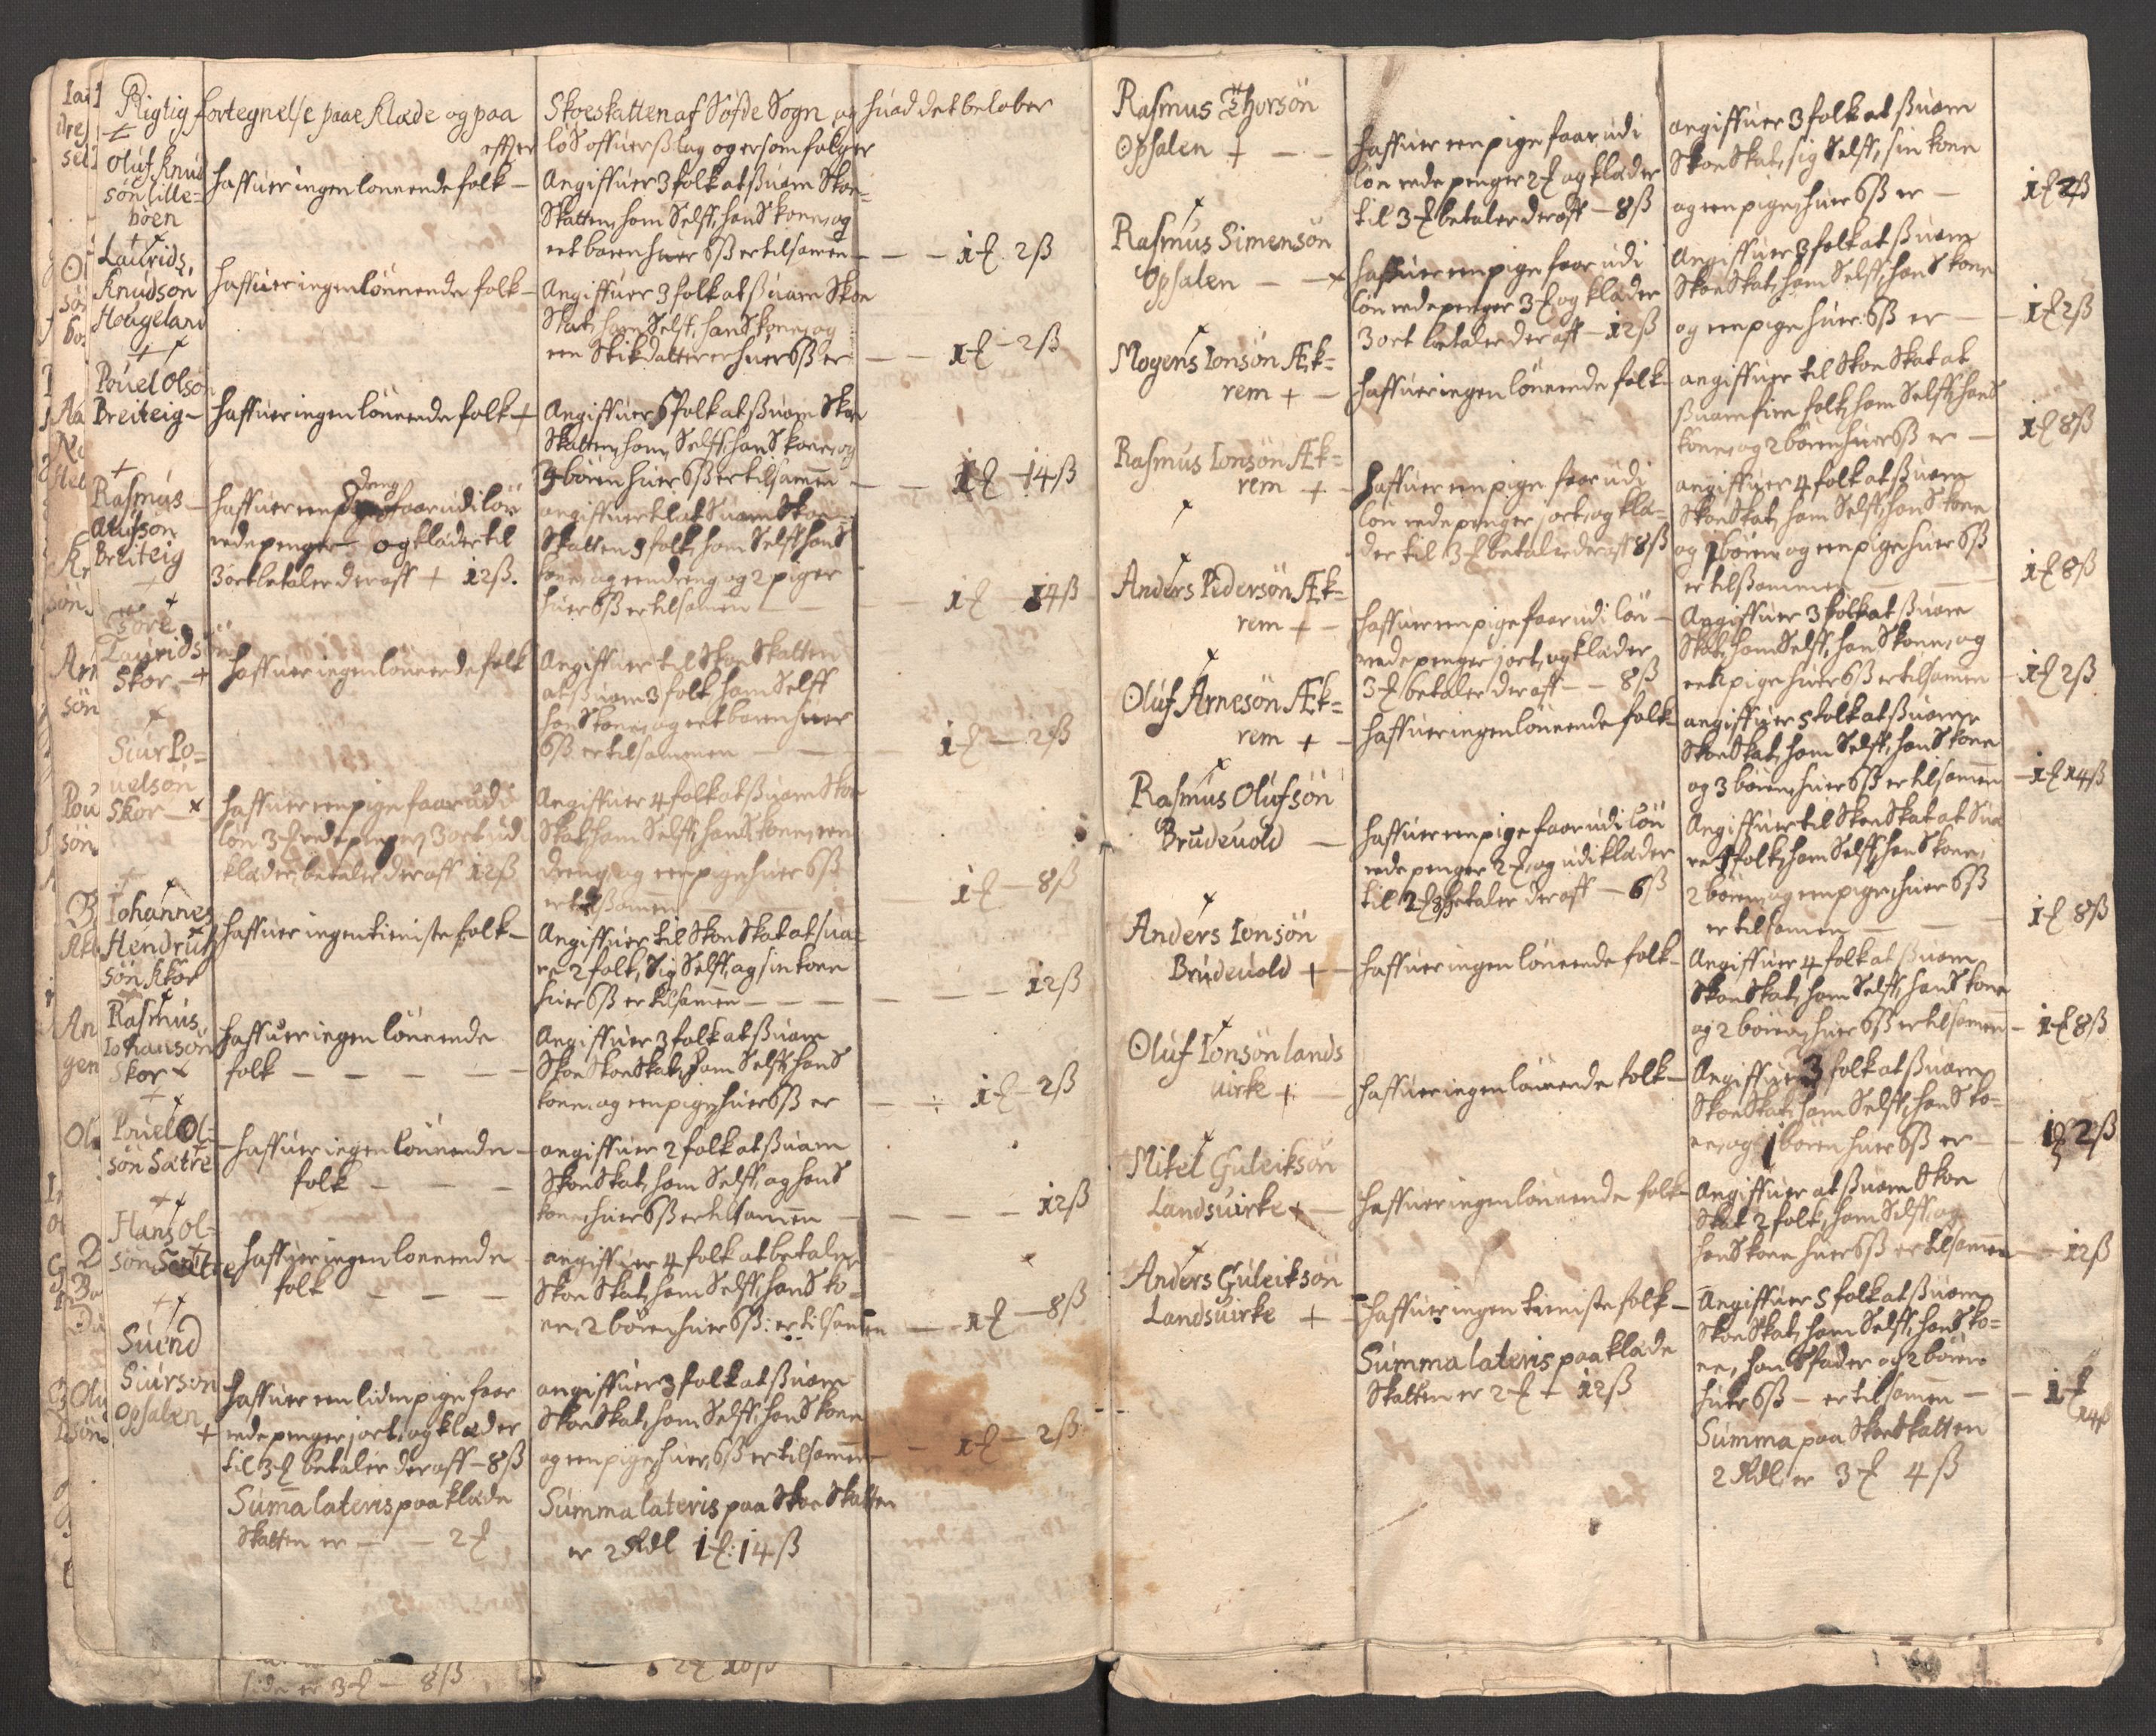 Rigtig fortegnelse paae Klæde og paa Skoeskatten af Söfde Sogn og huad det beløber
effter løs offuerßlag og er som følger
Oluf Knud
sön lille=
böen
haffuer ingen lönnende folk —
Angiffuer 3 folk at ßuare Skoe=
Skatten, ham Selff, hans kone, og
eet baren huer 6ß er tilsamen — — 1 2ß
Laurids
Knudsön
Hougeland
haffuer ingen lönnende folk —
Angiffuer 3 folk at ßuare Skoe
Skat, ham Selff, hans kone, og
een Stikdatter er huer 6ß er — — 1 — 2ß
Pouel Olsön
Breiteig —
haffuer ingen lönnende folk +
Angiffuer 5 folk at ßuare Skoe
Skatten, ham Selff, hans kone, og
3 börn huer 6ß er tilsammen — — 1 — 14ß
Rasmus
Olufsön
Breiteig
haffuer een dreng faar udi lön
rede penger og klæder til
3 ort betaler der aff + 12ß.
angiffuer til at Suare Skoe=
Skatten 5 folk, ham Selff hans
kone, og een dreng og 2 piger
huer 6ß er tilsamen — — 1 — 14ß
Töre
Lauridsön
Skor — +
haffuer ingen lönnende folk
Angiffuer til Skoe Skatten
at ßuare 3 folk ham Selff
hans kone, og eet baren huer
6ß er tilsammen — — 1 — 2ß
Siur Po=
uelsön
Skor — x
haffuer een pige faar udi
lön 3 rede penger, 3 ort udi
klæder, betaler der aff 12ß
Angiffuer 4 folk at ßuare Skoe
Skat, ham Selff, hans kone, een
dreng og een pige huer 6ß
er tilßamen — 1 — 8ß
Johannes
Hendrich
sön Skor
haffuer ingen tieniste folk —
Angiffuer til Skoe Skat at sua=
re 2 folk, Sig Selff, og sin kone
huer 6ß er tilsamen — — — 12ß
Rasmus
Johansön
Skor x
haffuer ingen lönnende
folk — — — —
Angiffuer 3 folk at ßuare
Skoe Skoe Skat, ham Selff, hans
kone, og een pige, huer 6ß er — — 1 — 2ß
Pouel Ol=
sön Sætre
haffuer ingen lönnende —
folk — — —
angiffuer 2 folk at ßuare
Skoe Skat, ham Selff, og hans
kone, huer 6ß er tilsamen — — — 12ß
Hans Ol=
sön Sætre
haffuer ingen lönnende
folk — — —
angiffuer 4 folk at betale
Skoe Skat, ham Selff, hans ko=
ne, 2 börn huer 6ß: er tilsamen — 1 — 8ß
Suend
Siursön
Opsalen +
haffuer een liden pige faar
rede penger 1 ort, og klæder
til 3 betaler der aff — 8ß
angiffuer 3 folk at ßuare
Skoe Skat, ham Selff, hans kone
og een pige, huer 6ß er tilsamen — 1 — 2ß
Suma lateris paa klæde
Skatten er — — 2
Summa lateris paa Skoe Skatten
er 2 Rdl 1: 14ß
side er 3 — 8ß
Rasmus Thorsön
Opsalen + — —
haffuer een pige faar udi
lön rede penger 2 og klæder
til 3 betaler der aff — 8ß
angiffuer 3 folk at ßuare
Skoe Skat, sig Selff, sin kone
og een pige, huer 6ß er — 1 2ß
Rasmus Simensön
Opsalen — — x
haffuer een pige faar udi
lön rede penger 3 og klæder
3 ort betaler der aff — 12ß
Angiffuer 3 folk at ßuare
Skoe Skat, ham Selff, hans kone
og een pige huer 6ß er — — 1 2ß
Mogens Ionsön Æk=
rem + —
haffuer ingen lönnende folk —
angiffuer til Skoe Skat at
ßuare fire folk, ham Selff, hans
kone, og 2 börn huer 6ß er — 1 8ß
Rasmus Ionsön Æk=
rem + —
haffuer een pige faar udi
lön rede penger 1 ort, og klæ=
der til 3 betaler der aff 8ß
angiffuer 4 folk at ßuare
Skoe Skat, ham Selff, hans kone
og 1 börn og een pige huer 6ß
er tilßammen — — 1 8ß
Anders Pedersön Æk=
rem + —
haffuer een pige faar udi lön —
rede penger 1 ort, og klæder
3 betaler der aff — — 8ß
Angiffuer 3 folk at ßuare
Skat, ham Selff, hans kone, og
een pige huer 6ß er tilsamen — 1 2ß
Oluf Arnesön Æk=
rem + —
haffuer ingen lönnende folk —
angiffuer 5 folk at ßuare
Skoe Skat, ham Selff, hans kone
og 3 börn, huer 6ß er tilsamen — 1 14ß
Rasmus Olufsön
Brudeuold —
haffuer een pige faar udi lön
rede penger 2, og udi klæder
til 2 betaler der aff — 6ß
Angiffuer til Skoe Skat at Sua
re 4 folk, ham Selff, hans kone,
2 börn, og een pige, huer 6ß
er tilsamen — — 1 8ß
Anders Ionsön
Brudeuold + —
haffuer ingen lönnende folk —
Angiffuer 4 folk at ßuare
Skoe Skat, ham Selff, hans kone
og 2 börn, huer 6ß er tilsamen — 1 8ß
Oluf Ionsön lands
uirke + —
haffuer ingen lönnende folk —
Angiffuer 3 folk at ßuare
Skoe Skat, ham Selff, hans ko=
ne, og 1 börn huer 6ß er — — 1 2ß
Mikel Guleiksön
Landsuirke + —
haffuer ingen lönnende folk —
Angiffuer at ßuare Skoe
Skat 2 folk, ham Selff, og
hans kone huer 6ß er tilsamen — 12ß
Anders Guleiksön
Landsuirke +
haffuer ingen tieniste folk —
Angiffuer 5 folk at ßuare
Skoe Skat, ham Selff, hans ko=
ne, hans fader og 2 börn
huer 6ß — er tilsamen — — 1 14ß
Summa lateris paa klæde
Skatten er 2 + 12ß
Summa paa Skoe Skatten
2 Rdl er 3 4ß